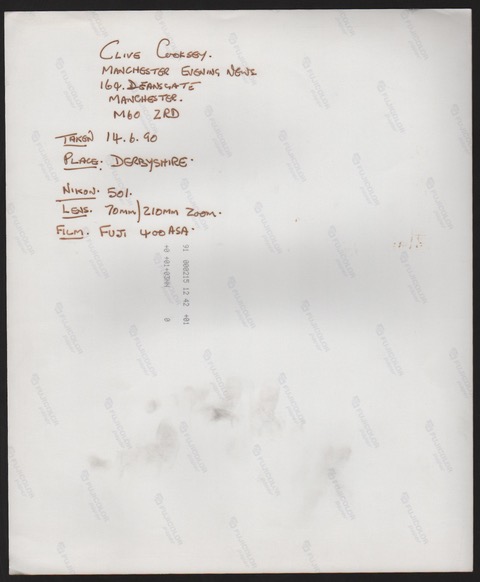 CLIVE COOKSEY.
MANCHESTER EVENING NEWS
164. DEANSGATE
MANCHESTER.
M60 2RD
TAKEN 14.6.90
PLACE. DERBYSHIRE.
NIKON. 501.
LENS. 70MM/210MM ZOOM.
FILM. FUJI 400ASA.
91 000215 12 42 +01
+0 +01+02NN 0
FUJICOLOR